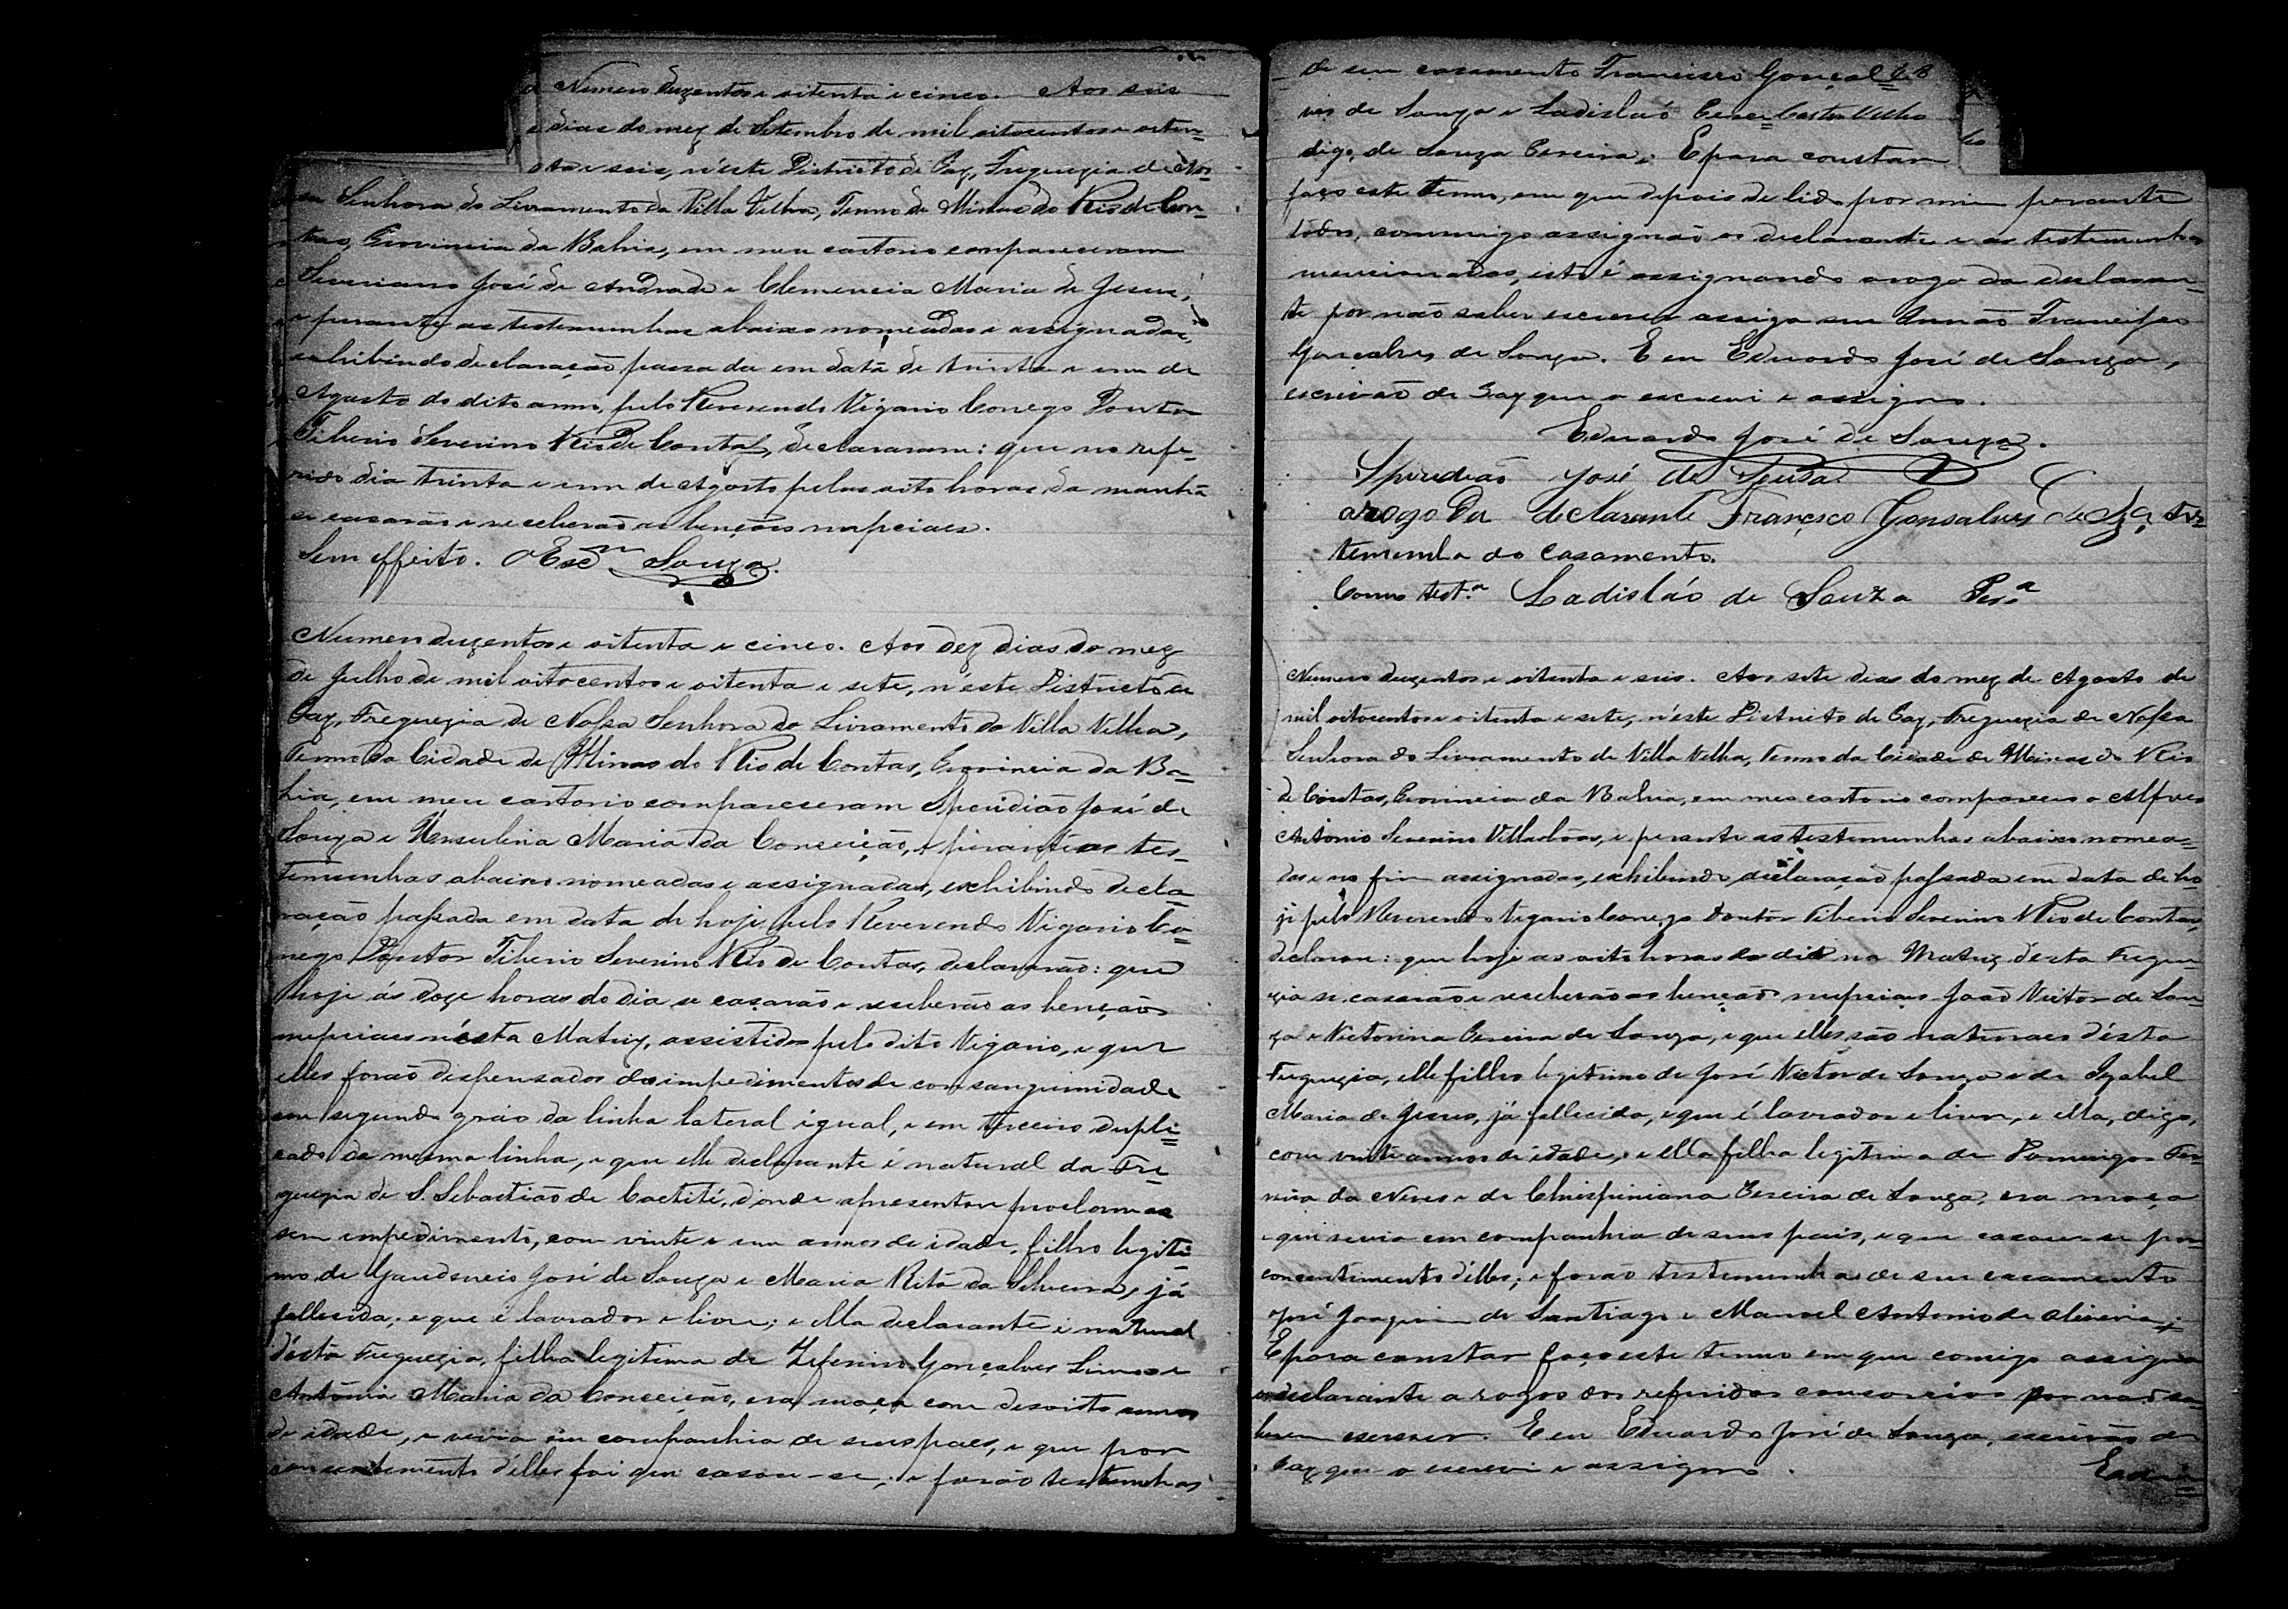 Numero duzentos e oitenta e cinco. Aos seis
dias do mez de Setembro de mil oitocentos e oiten=
ta e seis, n'éste Districto de Paz, Freguezia de Nos=
sa Senhora do Livramento da Villa Velha, Termo de Minas do Rio de Con=
tas, Provincia da Bahia, em meu cartorio compareceram
Severiano José de Andrade e Clemencia Maria de Jesus,
e perante as testemunhas abaixo nomeadas e assignadas,
exhibindo declaração passada em data de trinta e um de
Agosto do dito anno, pelo Reverendo Vigario Conego Doutor
Tiberio Severino Rio de Contas, declararam: que no refe=
rido dia trinta e um de Agosto pelas oito horas da manhã
se casarão e receberão as benções nupciaes.
Sem effeito. O Escm Souza.
Numero duzentos e oitenta e cinco. Aos dez dias do mez
de Julho de mil oitocentos e oitenta e sete, n'éste Districto de
Paz, Freguezia de Nossa Senhora do Livramento da Villa Velha,
Termo da Cidade de Minas do Rio de Contas, Provincia da Ba=
hia, em meu cartorio compareceram Speridião José de
Souza e Ursulina Maria da Conceição, e perante as tes=
temunhas abaixo nomeadas e assignadas, exhibindo decla=
ração passada em data de hoje pelo Reverendo Vigario Co=
nego Doutor Tiberio Severino Rio de Contas, declararão: que
hoje ás doze horas do dia se casarão e receberão as benções
nupciaes n'ésta Matriz, assistidos pelo dito Vigario, e que
elles forão dispensados dos impedimentos de consanguinidade
em segundo gráo da linha lateral igual, e em terceiro dupli=
cado da mesma linha, e que elle declarante é natural da Fre
guezia de S. Sebastião de Caetité, d'onde apresentou proclamas
sem impedimento, com vinte e um annos de idade, filho legiti=
mo de Gaudencio José de Souza e Maria Rita da Silveira, já
fallecida, e que é lavrador e livre; e ella declarante é natural
d'ésta Freguezia, filha legitima de Zeferino Gonçalves Lima e
Antonia Maria da Conceição, era moça com desoito annos
de idade, e vivia em companhia de seus paes, e que por
consentimento d'elles foi que casou-se; e forão testemunhas
de seu casamento Francisco Gonçal=
ves de Souza e Ladisláo Castro Velho
digo, de Souza Pereira; E para constar
faço este termo, em que depois de lido por mim perante
todos, commigo assignão os declarantes e as testemunhas
mencionadas, isto é assignando a rogo da declaran=
te por não saber escrever assigo seu Irmão Francisco
Gonçalves de Souza. E eu Eduardo José de Souza,
escrivão de Paz que o escrevi e assigno.
Eduardo José de Souza.
Spiridião José de Sousa
arogo Da declarante Francisco Gonsalves de Sza tes
temunha do casamento.
Como testa Ladisláo de Souza Pera
Numero duzentos e oitenta e seis. Aos sete dias do mez de Agosto de
mil oitocentos e oitenta e sete, n'éste Districto de Paz, Freguezia de Nossa
Senhora do Livramento de Villa Velha, Termo da Cidade de Minas do Rio
de Contas, Provincia da Bahia, em meo cartorio compareceo o Alferes
Antonio Severino Villasbôas, e perante as testemunhas abaixo nomea=
das e no fim assignadas, exhibindo declaração passada em data de ho=
je pelo Reverendo Vigario Conego Doutor Tiberio Severino Rio de Contas,
declarou: que hoje as oito horas do dia na Matriz d'ésta Fregue=
zia se casarão e receberão as benção nupciaes João Victor de Sou=
za e Victorina Pereira de Souza, e que elles são naturaes d'ésta
Freguezia, elle filho legitimo de José Victor de Souza e de Izabel
Maria de Jesus, já fallecida, e que é lavrador e livre, e ella, digo,
com vinte annos de idade, e ella filha legitima de Domingos Fer=
reira da Neves e de Chrispiniana Pereira de Souza, era moça
e que vivia em companhia de seus pais, e que casou-se por
consentimento d'elles; e forão testemunhas de seu casamento
José Joaquim de Santiago e Manoel Antonio de Oliveira;
E para constar faço este termo em que comigo assigna
o declarante a rogos dos referidos consorcios por não sa=
berem escrever. E eu Eduardo José de Souza, escrivão de
Paz que o escrevi e assigno.